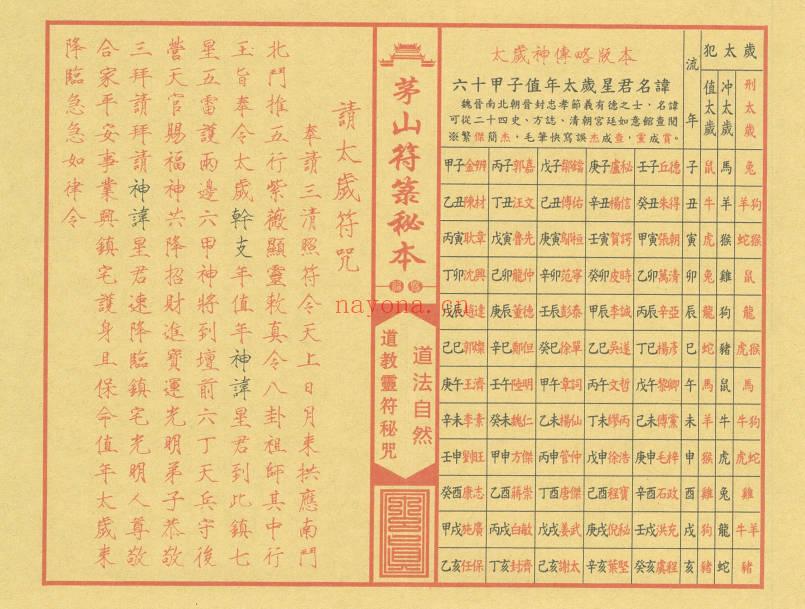 犯太歲
刑太歲
冲太歲
值太歲
流年
太歲神傳略版本
六十甲子值年太歲星君名諱
魏晉南北朝曾封忠孝節義有德之士，名諱
可從二十四史、方誌、清朝宮廷如意館查閱
※繁傑簡杰，毛筆快寫誤杰成查，黨成賞。
甲子金辨 丙子郭嘉 戊子鄒鐺 庚子盧秘 壬子丘德 子 鼠 馬 兔
乙丑陳材 丁丑汪文 己丑傅佑 辛丑楊信 癸丑朱得 丑 牛 羊 羊狗
丙寅耿章 戊寅魯先 庚寅鄔桓 壬寅賀諤 甲寅張朝 寅 虎 猴 蛇猴
丁卯沈興 己卯龍仲 辛卯范寧 癸卯皮時 乙卯萬清 卯 兔 雞 鼠
戊辰趙達 庚辰董德 壬辰彭泰 甲辰李誠 丙辰辛亞 辰 龍 狗 龍
己巳郭燦 辛巳鄭但 癸巳徐單 乙巳吳遂 丁巳楊彥 巳 蛇 豬 虎猴
庚午王濟 壬午陸明 甲午章詞 丙午文哲 戊午黎卿 午 馬 鼠 馬
辛未李素 癸未魏仁 乙未楊仙 丁未繆丙 己未傅黨 未 羊 牛 牛狗
壬申劉旺 甲申方傑 丙申管仲 戊申徐浩 庚申毛梓 申 猴 虎 虎蛇
癸酉康志 乙酉蔣崇 丁酉唐傑 己酉程寶 辛酉石政 酉 雞 兔 雞
甲戌施廣 丙戌白敏 戊戌姜武 庚戌倪秘 壬戌洪充 戌 狗 龍 牛羊
乙亥任保 丁亥封濟 己亥謝太 辛亥葉堅 癸亥虞程 亥 豬 蛇 豬
茅山符箓秘本
道法自然
道教靈符秘咒
請太歲符咒
奉請三清照符令天上日月來拱應南鬥
北鬥推五行紫薇顯靈敕真令八卦祖師其中行
玉旨奉令太歲幹支年值年神諱星君到此鎮七
星五雷護兩邊六甲神將到壇前六丁天兵守後
營天官賜福神共降招財進寶運光明弟子恭敬
三拜請拜請神諱星君速降臨鎮宅光明人尊敬
合家平安事業興鎮宅護身且保命值年太歲來
降臨急急如律令
nayona.cn